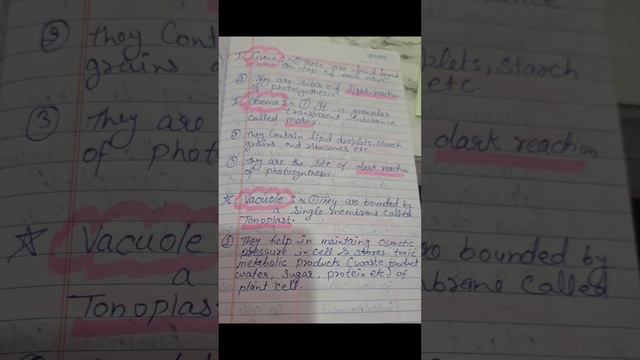 1. Grana :- ① These are found layed
on top of each other
② They are sites of light reaction
of photosynthesis.
2. Stroma :- ① It is granular
transparent substance
called matrix.
② they Contain lipid droplets, starch
grains and ribosomes etc
③ They are the site of dark reaction
of photosynthesis.
☆ Vacuole :- ① They are bounded by
a single membrane called
Tonoplast.
② They help in maintaing osmotic
pressure in cell & stores toxic
metabolic products (waste product
water, sugar, protein etc) of
plant cell.